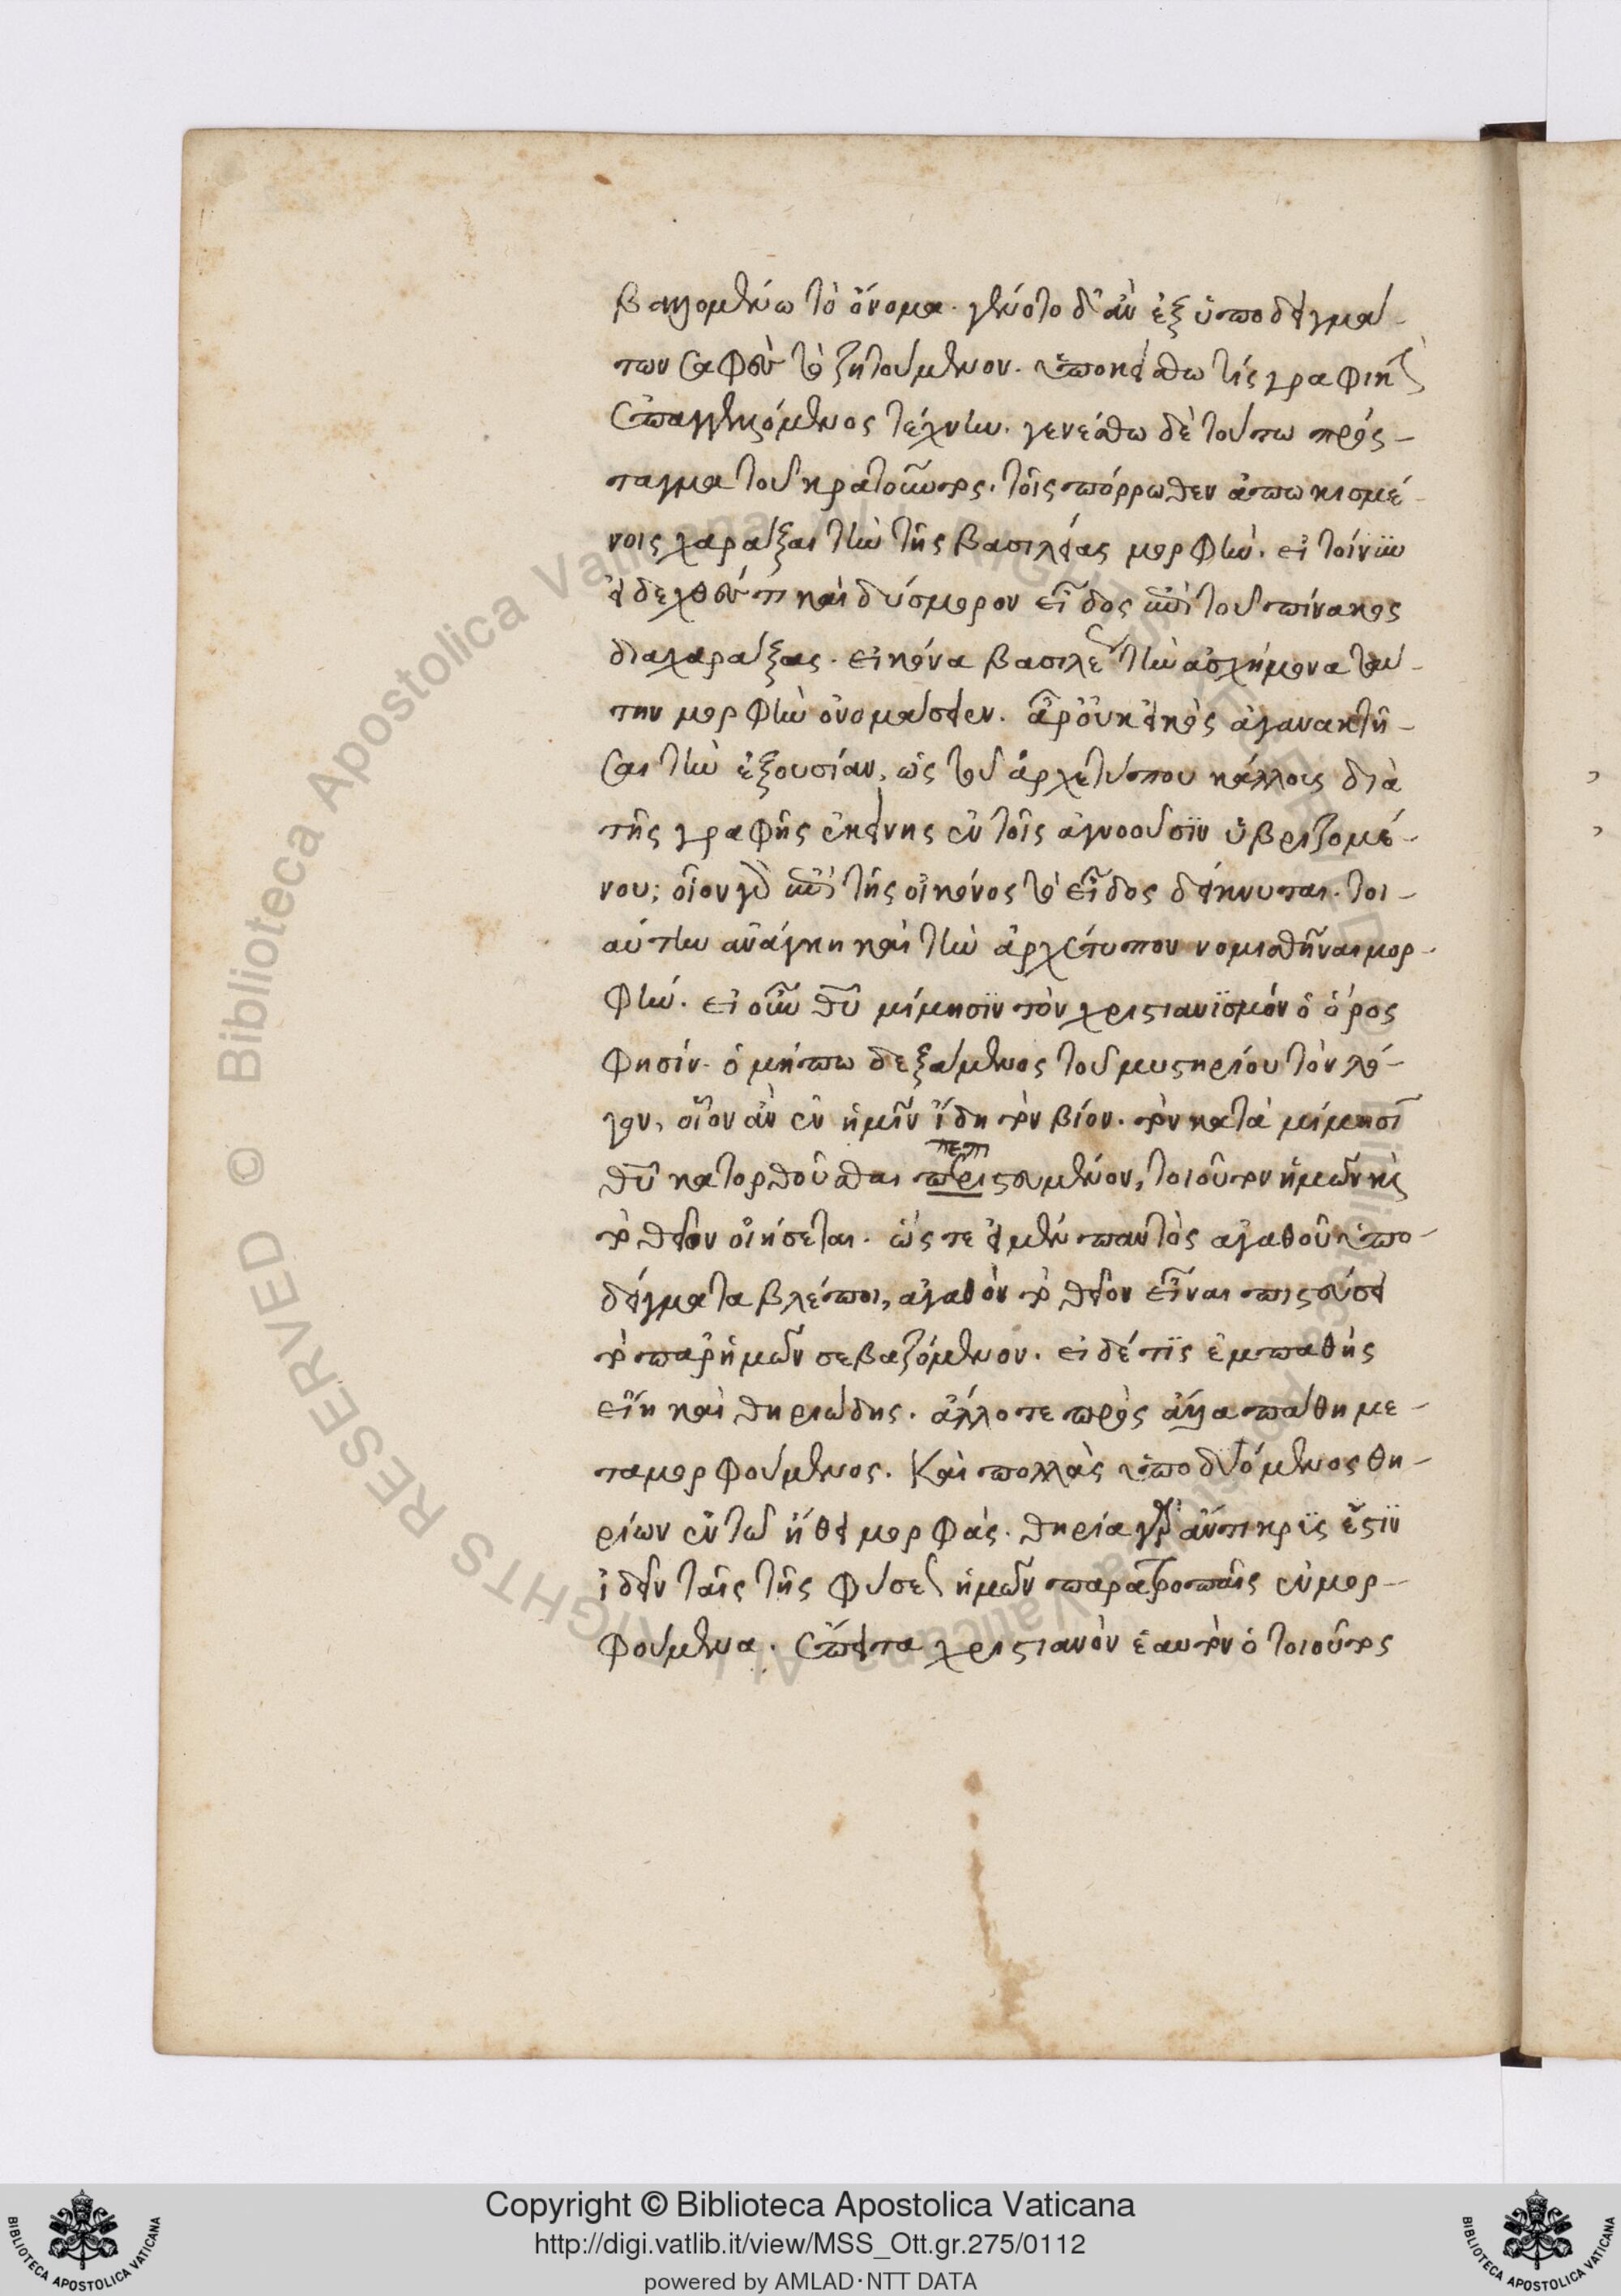 βαλλομένῳ τὸ ὄνομα. γένοιτο δ' ἂν ἐξ ὑποδειγμά-
των σαφὲς τὸ ζητούμενον. ὑποκείσθω τίς γραφικὴν
ἐπαγγελλόμενος τέχνην. γενέσθω δὲ τούτω πρός-
ταγμα τοῦ κρατοῦντος. τοῖς πόρρωθεν ἀπωκισμέ-
νοις χαράξαι τὴν τῆς βασιλείας μορφήν. εἰ τοίνυν
ειδεχθές τι καὶ δύσμορον εἶδος ἐπὶ τοῦ πίνακος
διαχαράξας. εἰκόνα βασιλέως τὴν ἀσχήμονα ταύ-
την μορφὴν ὀνομάσειεν. ἆρ' οὐκ εἰκὸς ἀγανακτῆ-
σαι τὴν ἐξουσίαν, ὡς τοῦ ἀρχετύπου κάλλους διὰ
τῆς γραφῆς ἐκείνης ἐν τοῖς ἀγνοοῦσιν ὑβριζομέ-
νου; οἷον γὰρ ἐπὶ τῆς οἰκόνος τὸ εἶδος δείκνυται. τοι-
αύτην ἀνάγκη καὶ τὴν ἀρχέτυπον νομισθῆναι μορ-
φήν. εἰ οὖν θυ μίμησϊν τὸν χριστιανϊσμόν ὁ ὅρος
φησίν. ὁ μήπω δεξάμενος τοῦ μυστηρίου τὸν λό-
γον, οἷον ἂν ἐν ἡμῖν ἴδη τὸν βίον. τὸν κατὰ μίμησϊν
θυ κατορθοῦσθαι πεπιστευμένον, τοιοῦτον ἡμῶν καὶ
τὸ θεῖον οἰήσεται. ὥςτε εἰ μὲν παντὸς ἀγαθοῦ ὑπο-
δείγματα βλέποι, ἀγαθὸν τὸ θεῖον εἶναι πιστεύσει
τὸ παρ' ἡμῶν σεβαζόμενον. εἰ δέ τϊς ἐμπαθὴς
εἴη καὶ θηριώδης. ἄλλοτε πρὸς ἄλλα πάθη με-
ταμορφούμενος. Καὶ πολλὰς ὑποδυόμενος θη-
ρίων ἐν τῶ ἤθει μορφάς. θηρία γὰρ ἄντικρϊς ἔστϊν
ἰδεῖν ταῖς τῆς φύσεως ἡμῶν παρατροπαῖς ἐμμορ-
φούμενα. ἔπειτα χριστιανὸν ἑαυτὸν ὁ τοιοῦτος
Copyright © Biblioteca Apostolica Vaticana
http://digi.vatlib.it/view/MSS_Ott.gr.275/0112
powered by AMLAD·NTT DATA